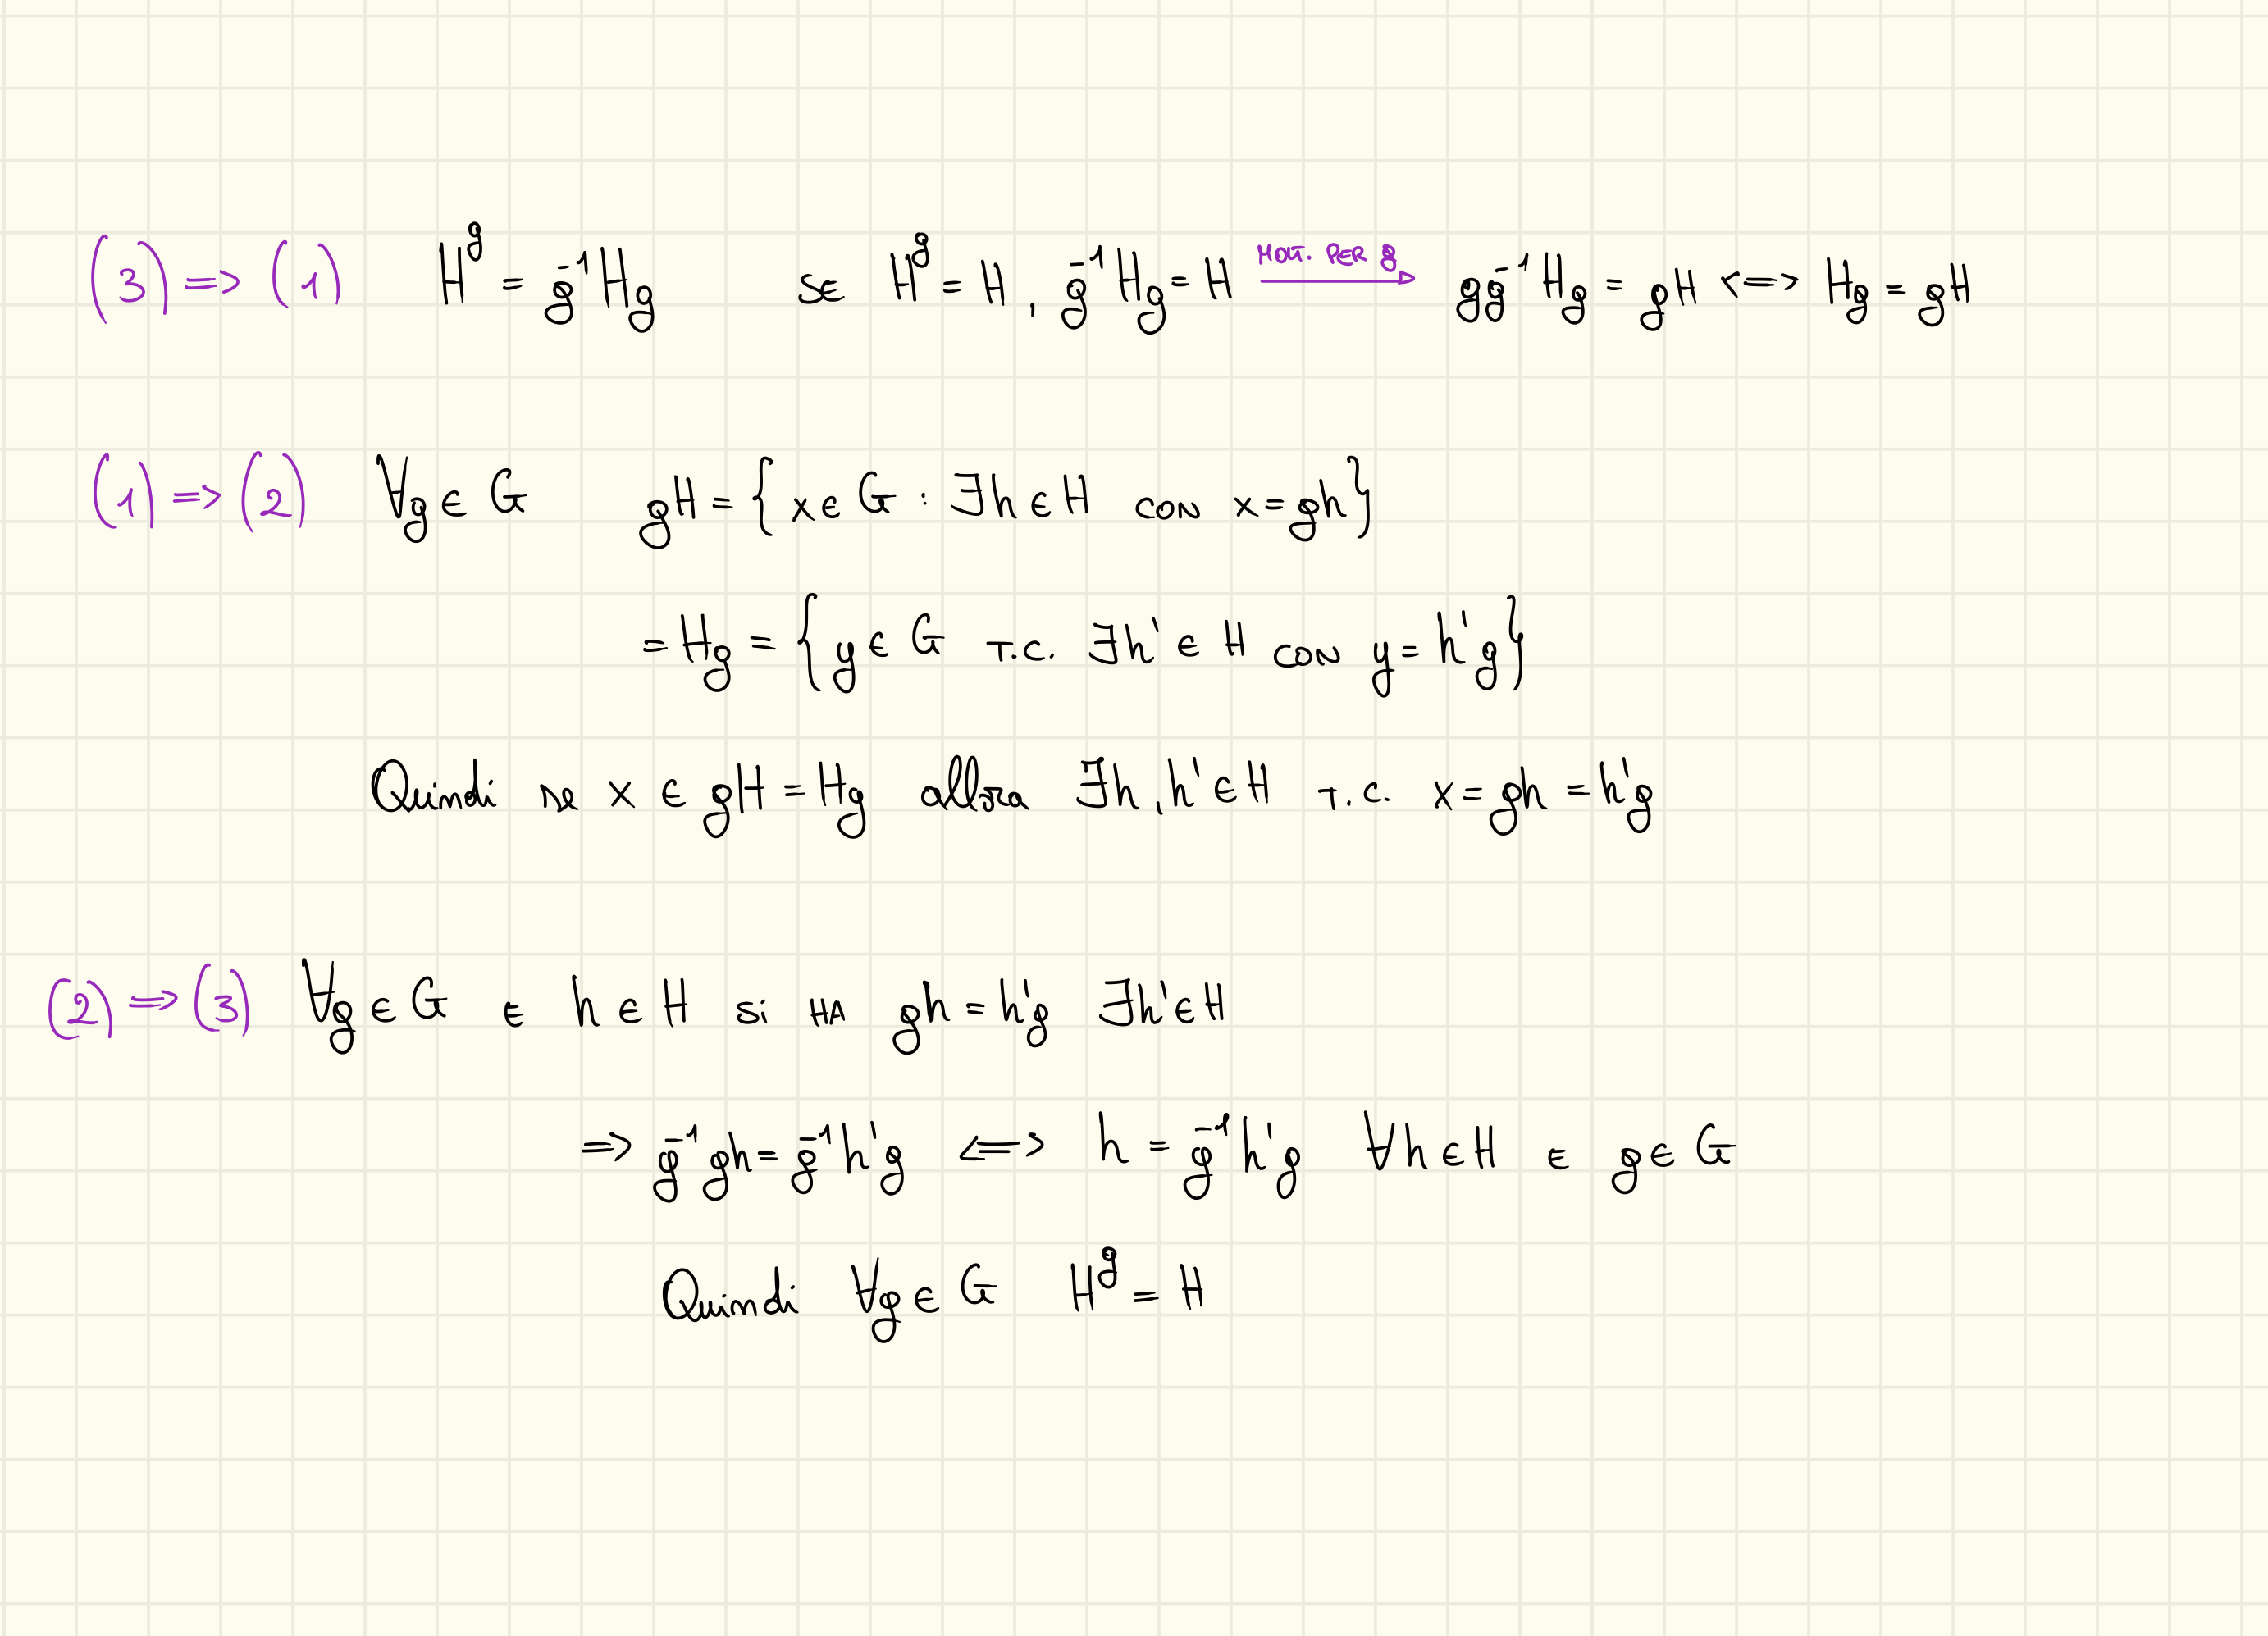 (3) => (1) H^g = g^-1 Hg se H^g = H, g^-1 Hg = H MOLT. PER g → gg^-1 Hg = gH <=> Hg = gH
(1) => (2) ∀g ∈ G gH = { x ∈ G : ∃h ∈ H con x = gh }
= Hg = { y ∈ G T.C. ∃h' ∈ H con y = h'g }
Quindi se x ∈ gH = Hg allora ∃h, h' ∈ H T.C. x = gh = h'g
(2) => (3) ∀g ∈ G E h ∈ H Si HA gh = h'g ∃h' ∈ H
=> g^-1 gh = g^-1 h'g <=> h = g^-1 h'g ∀h ∈ H E g ∈ G
Quindi ∀g ∈ G H^g = H